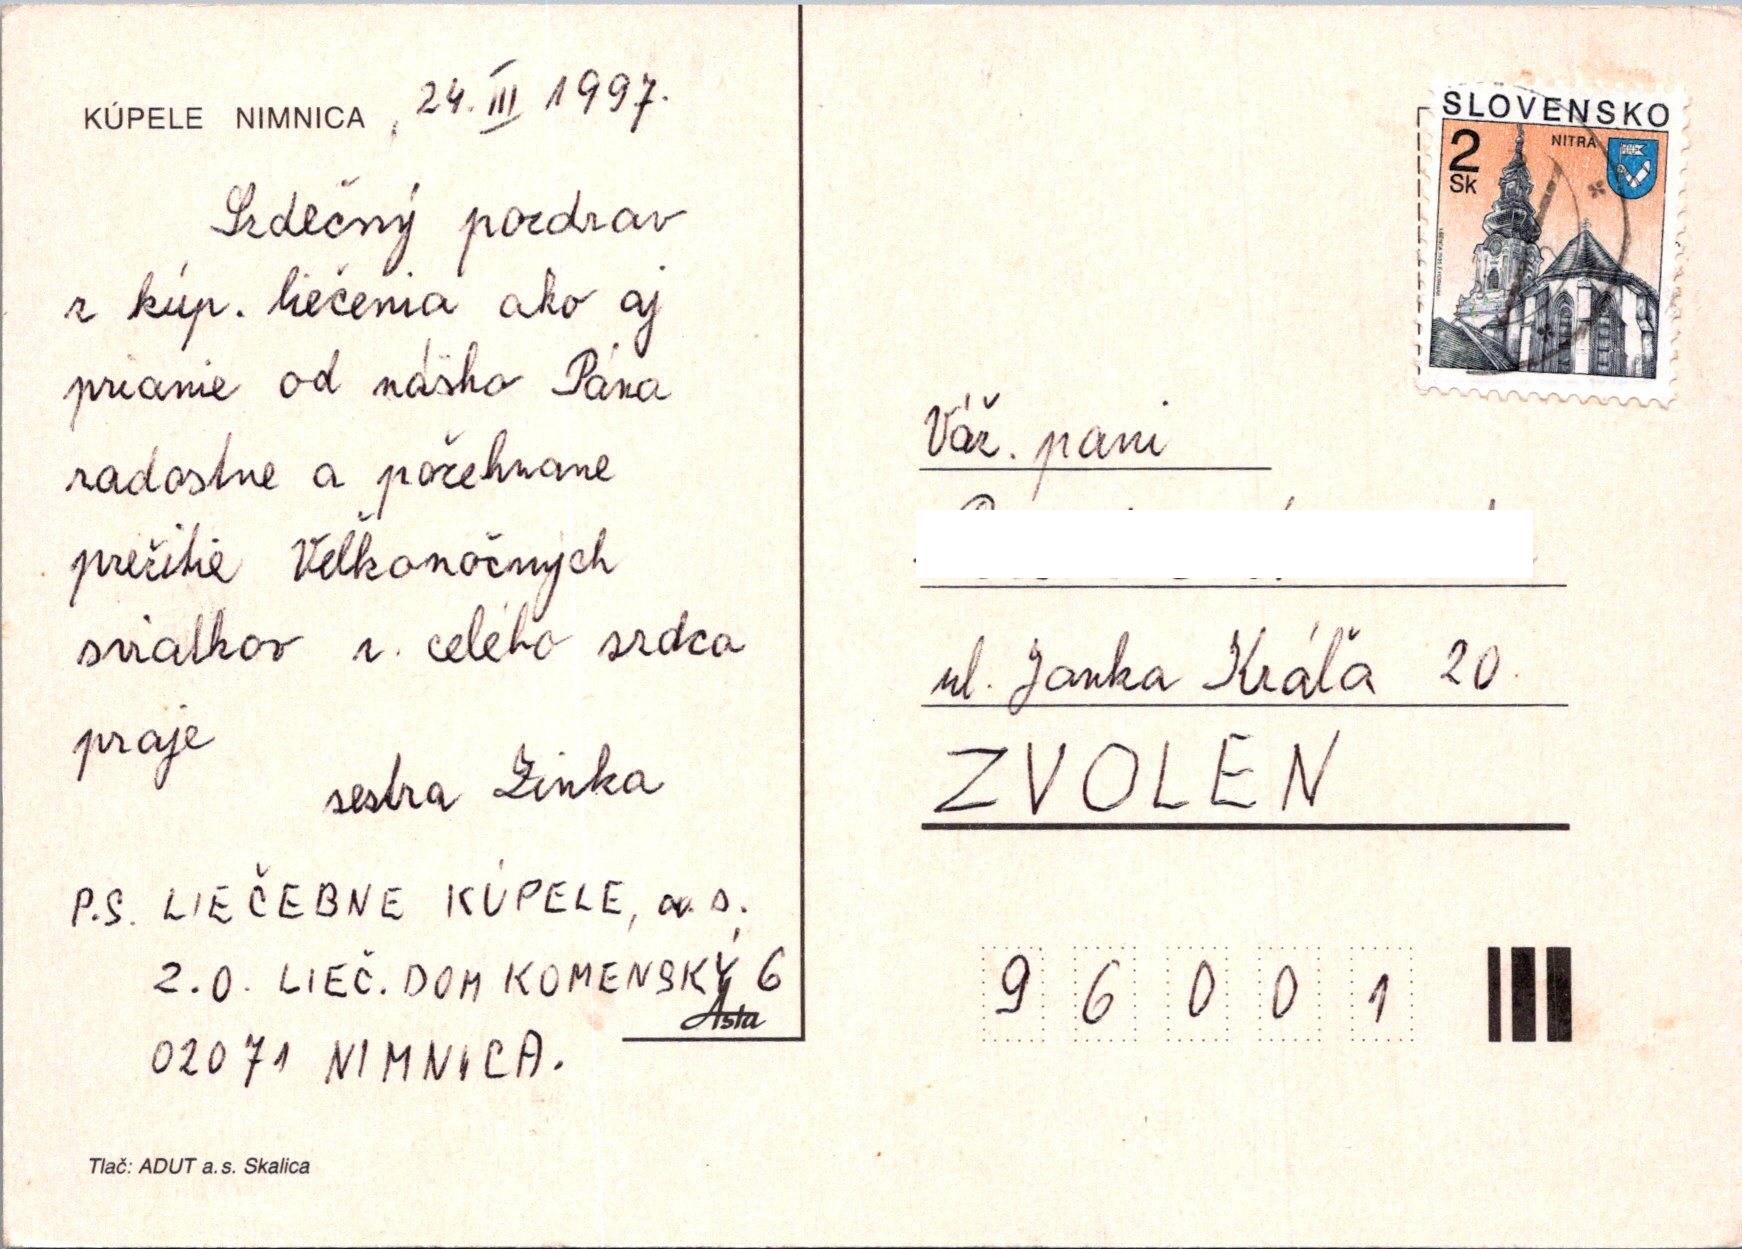 KÚPELE NIMNICA, 24. III 1997.
Srdečný pozdrav
z kúp. liečenia ako aj
prianie od nášho Pána
radostne a požehnane
prežitie Veľkonočných
sviatkov z. celého srdca
praje
sestra Zinka
P.S. LIEČEBNE KÚPELE, a. s.
Z.O. LIEČ. DOM KOMENSKÝ 6
02071 NIMNICA.
Asta
Tlač: ADUT a.s. Skalica
SLOVENSKO
2 Sk
NITRA
Váž. pani
ul. Janka Kráľa 20.
ZVOLEN
96001